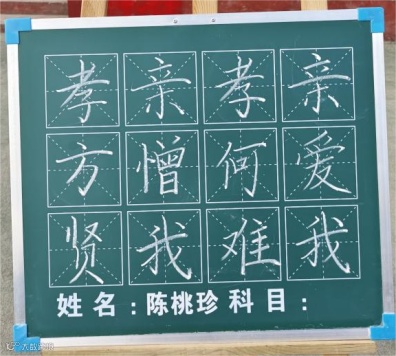 亲爱我
孝何难
亲憎我
孝方贤
姓名：陈桃珍科目：